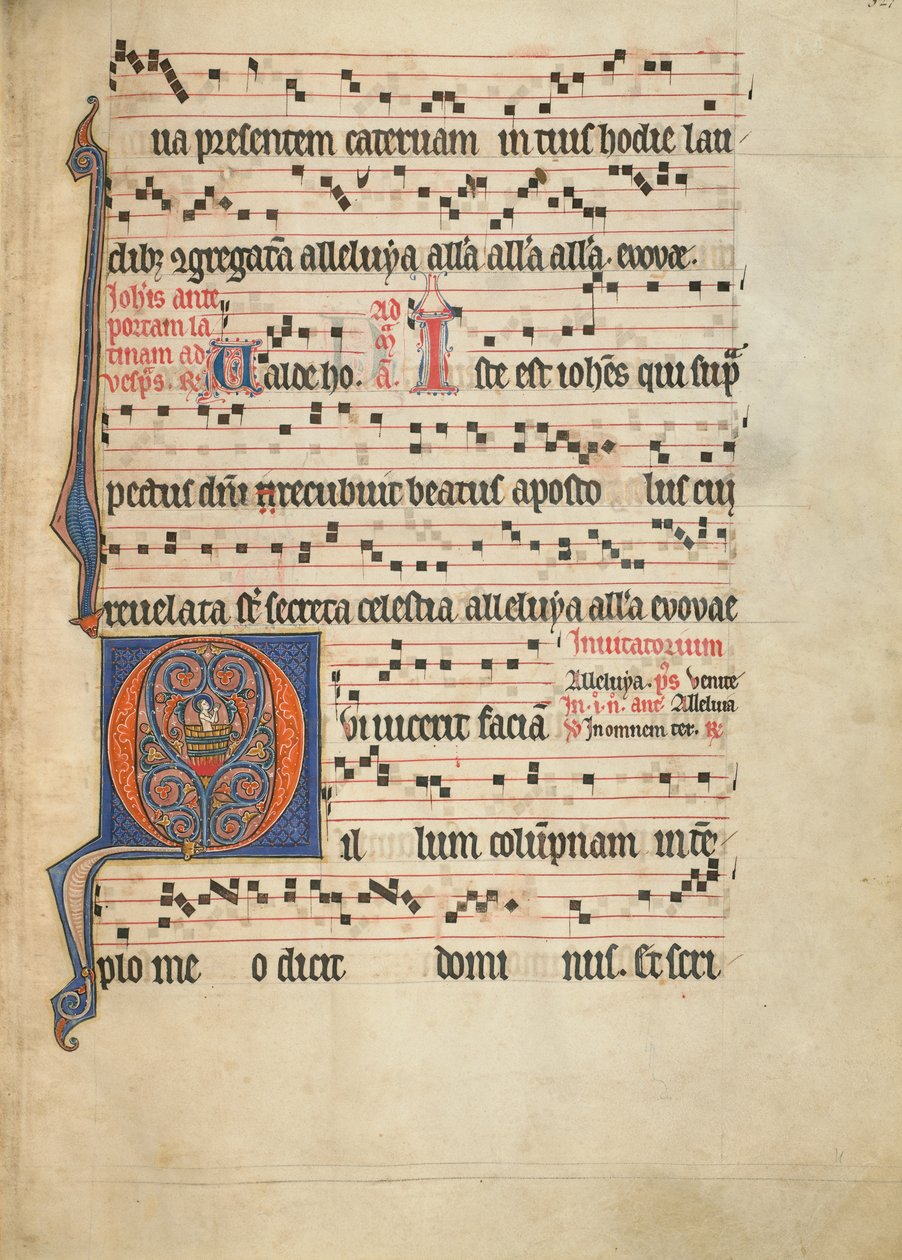 ua presentem cateruam in tuis hodie lau
dibꝫ ꝯgregatā alleluya all'a all'a all'a. evovae.
Joh'is ante
portam la
tinam ad
vesp̄s. R.
Ualde ho.
Ad
ā.
Iste est ioh̄es qui sup̄
pectus dn̄i recubuit beatus aposto lus cui
reuelata st̄ secreta celestia alleluya all'a evovae
Inuitatorium
Alleluya. p̄s Venite
In .i. n̄. ant̄ Alleluia
In omnem ter. R
Qui uicerit faciā
il lum colūpnam in tē
plo me o dicit domi nus. Et scri